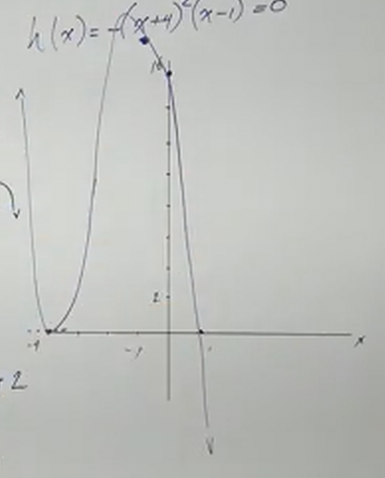 h(x) = -(x+4)²(x-1) = 0
16
2
-4 -1 1 x
2